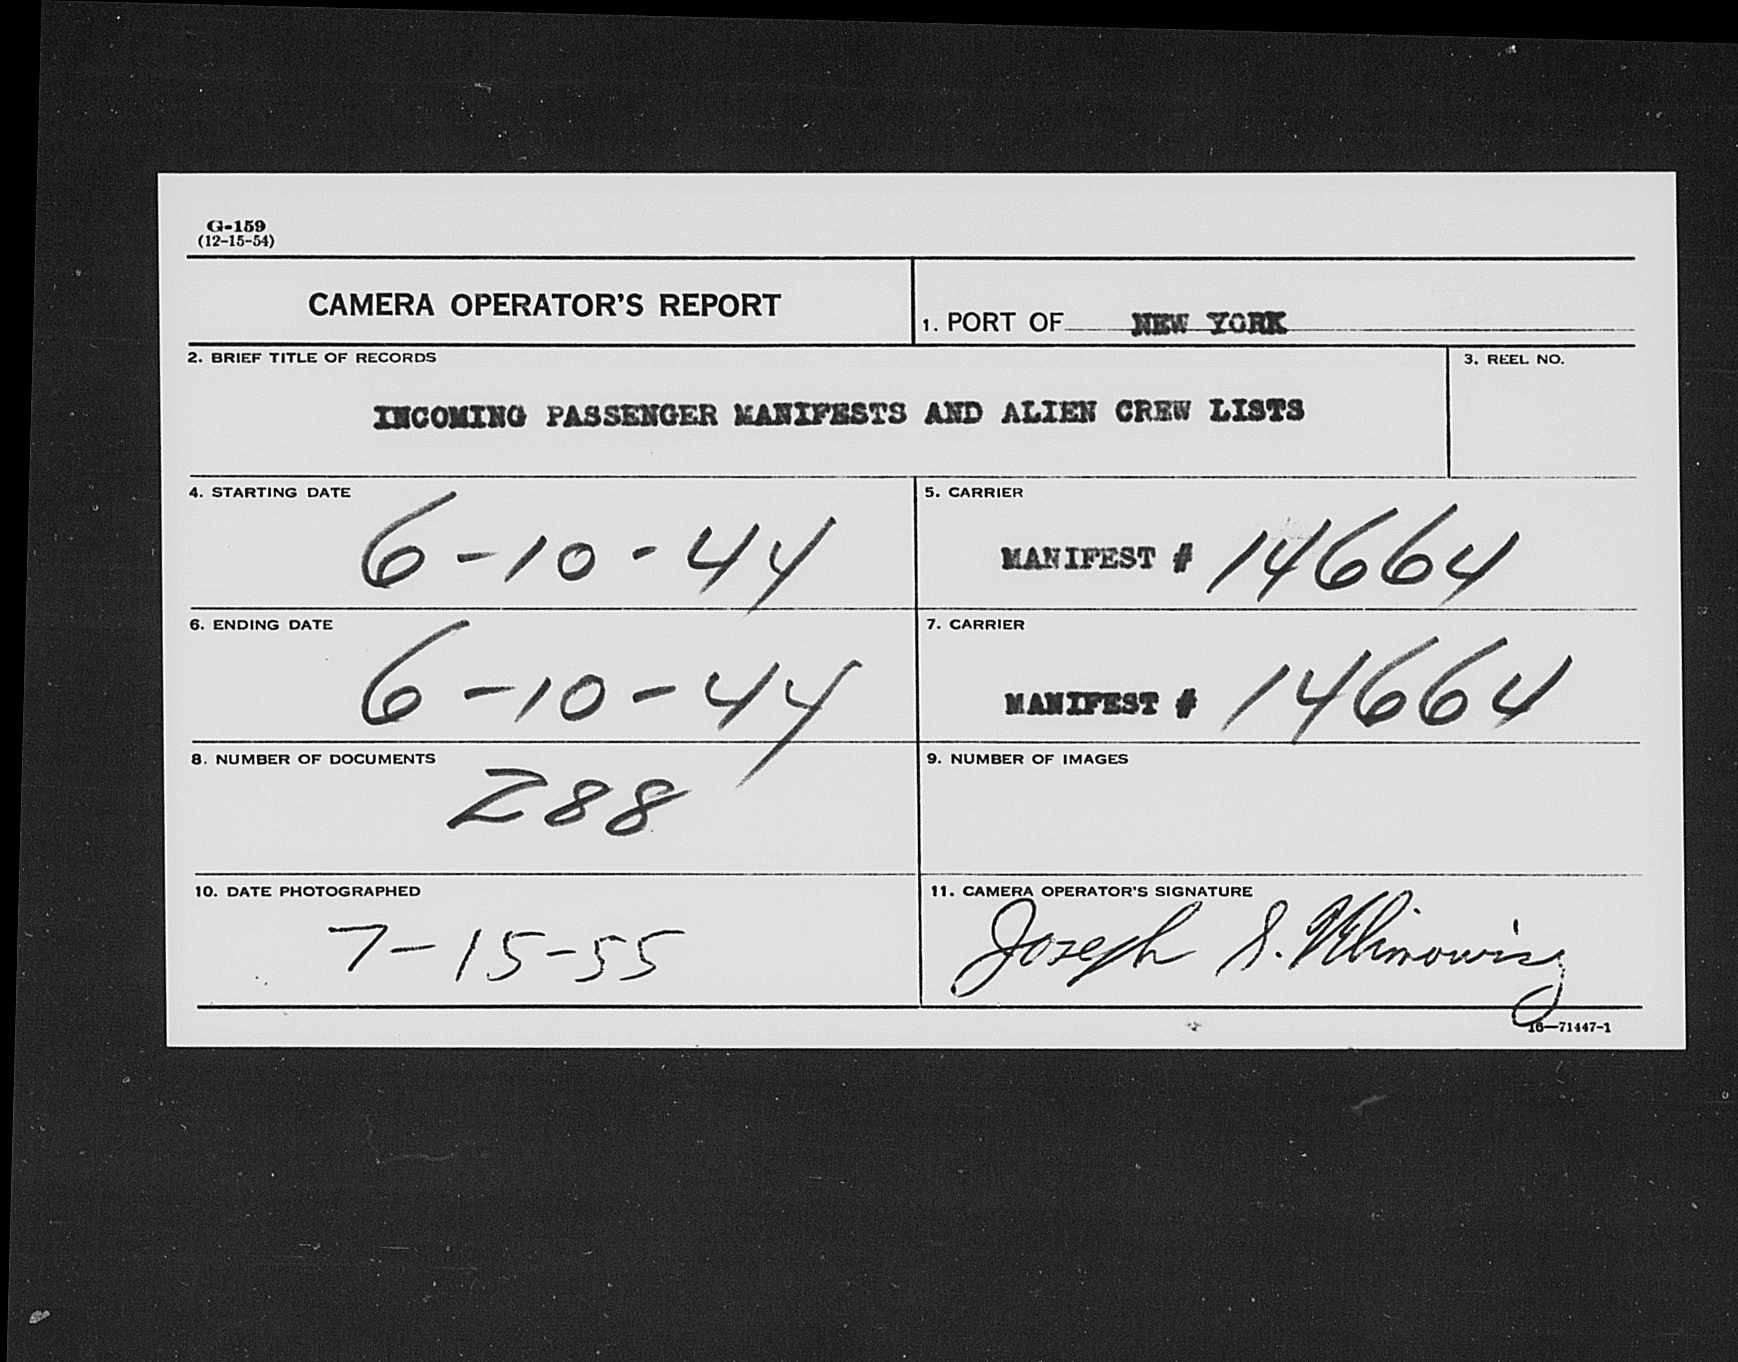 G-159
(12-15-54)
CAMERA OPERATOR'S REPORT
1. PORT OF NEW YORK
2. BRIEF TITLE OF RECORDS
3. REEL NO.
INCOMING PASSENGER MANIFESTS AND ALIEN CREW LISTS
4. STARTING DATE
6-10-44
5. CARRIER
MANIFEST # 14664
6. ENDING DATE
6-10-44
7. CARRIER
MANIFEST # 14664
8. NUMBER OF DOCUMENTS
288
9. NUMBER OF IMAGES
10. DATE PHOTOGRAPHED
7-15-55
11. CAMERA OPERATOR'S SIGNATURE
Joseph S.
16—71447-1